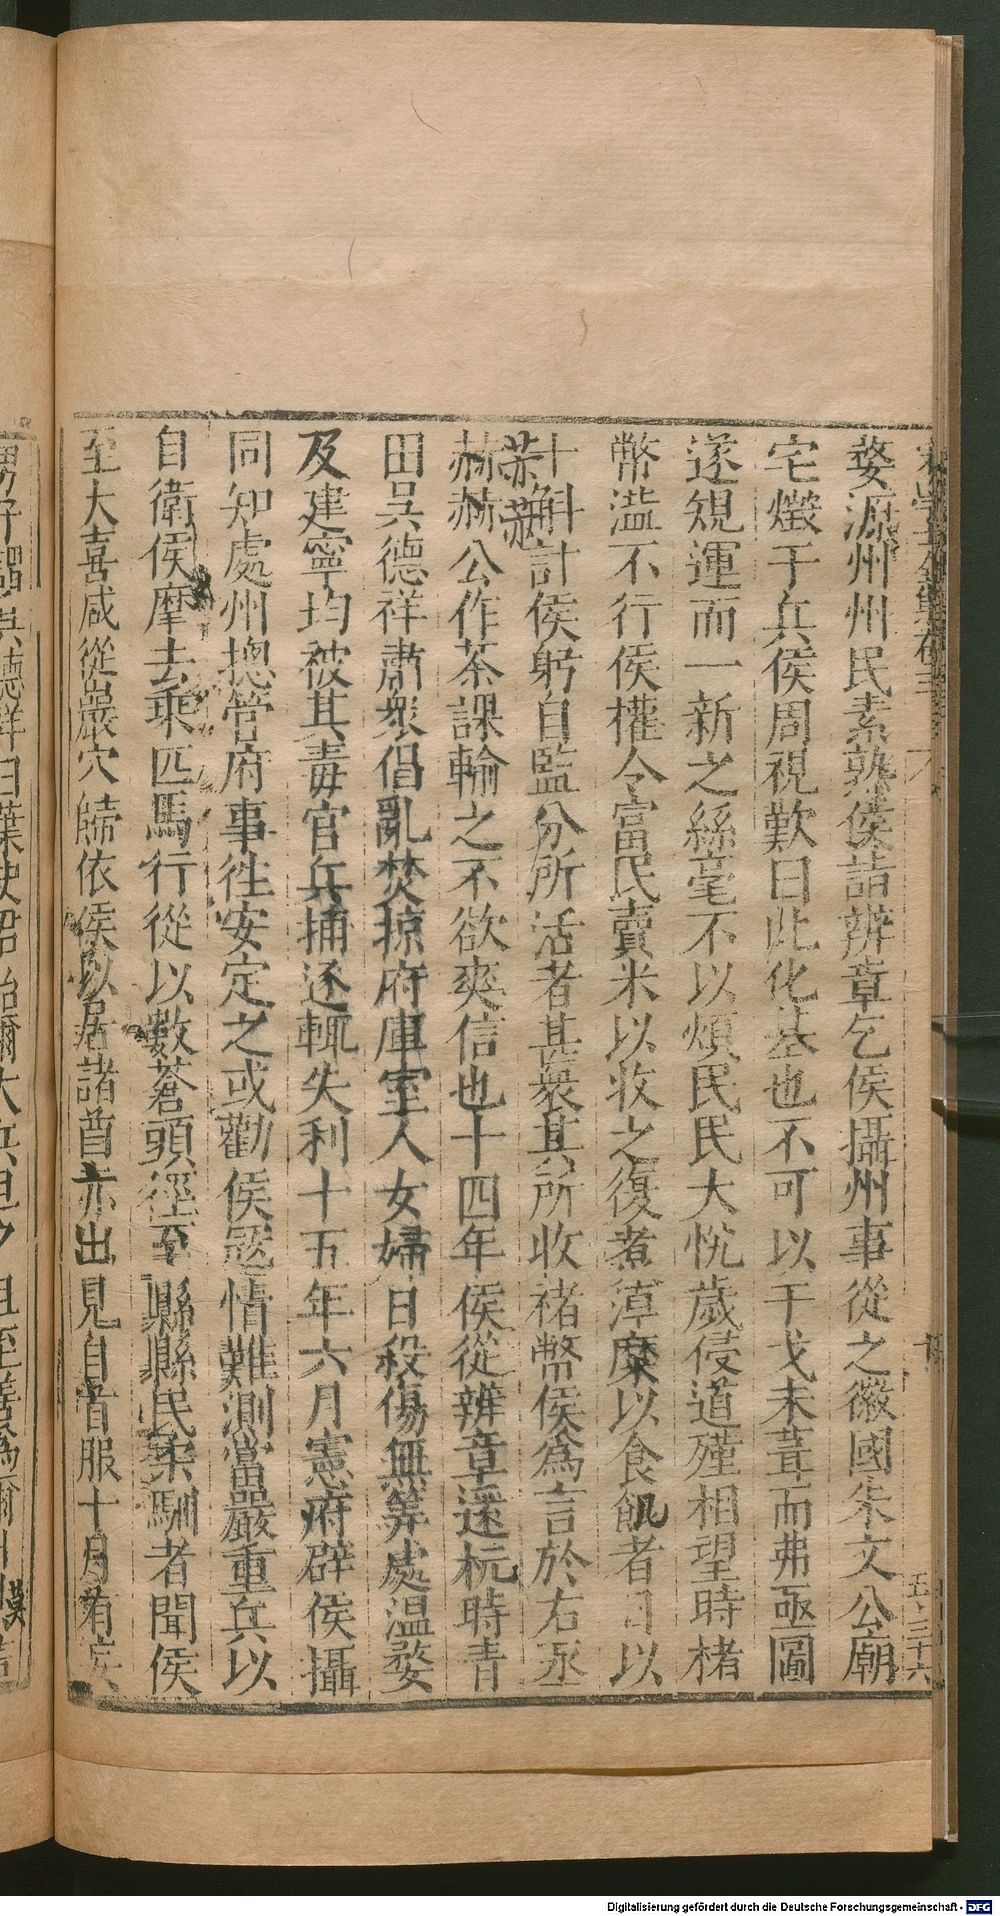 婺源州州民素熟侯詣辨章乞侯攝州事從之徽國朱文公廟
宅燬于兵侯周視歎曰此化基也不可以干戈未葺而弗亟圖
遂䂓運而一新之絲毫不以煩民民大悅歲侵道殣相望時楮
幣滥不行侯權令富民賣米以收之復煮淖糜以食飢者日以
十斛計侯躬自監分所活者甚衆其所收褚幣侯爲言於右丞
茶新
赫赫公作茶課輸之不欲爽信也十四年侯從辨章還杭時青
田吳德祥肅衆倡亂焚掠府庫室人女婦日殺傷無筭處温婺
及建寧均被其毒官兵捕逐輒失利十五年六月憲府辟侯攝
同知處州摠管府事徃安定之或勸侯冦情難測當嚴重兵以
自衛侯摩去乘匹馬行從以數蒼頭徑至縣縣民柔馴者聞侯
至大喜咸從巖穴歸依侯以居諸酋亦出見自首服十月有
五·三十六
Digitalisierung gefördert durch die Deutsche Forschungsgemeinschaft - DFG